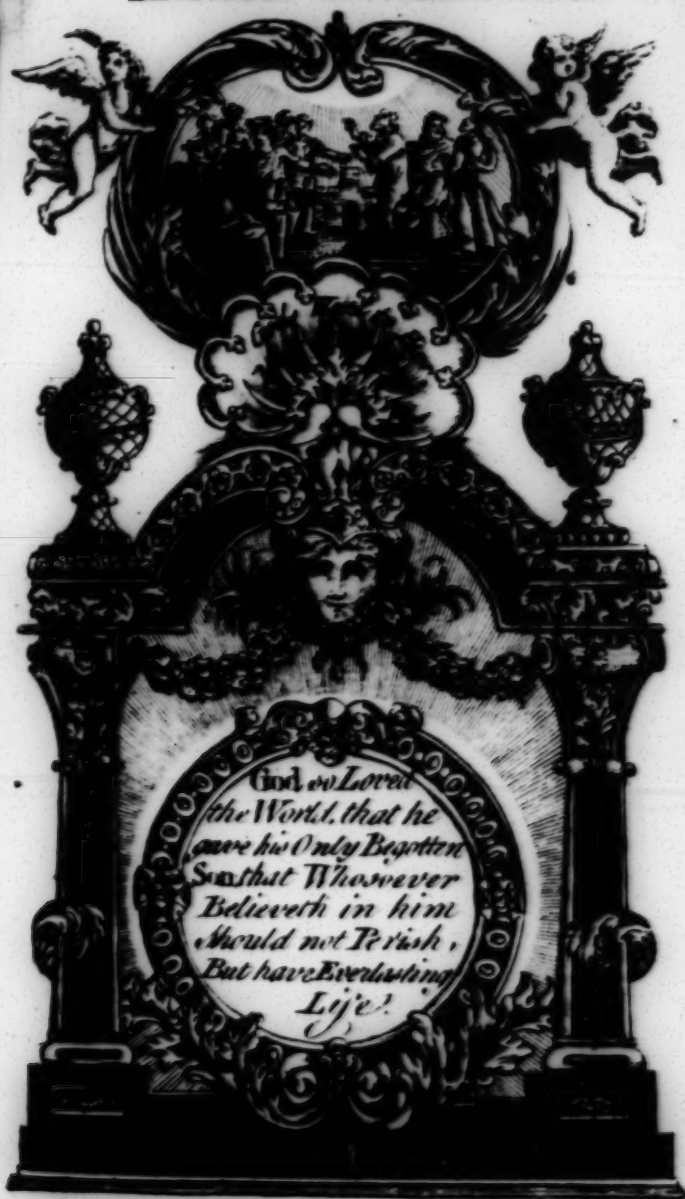 God so Loved
the World, that he
gave his Only Begotten
Son, that Whosoever
Believeth in him
should not Perish,
But have Everlasting
Life.